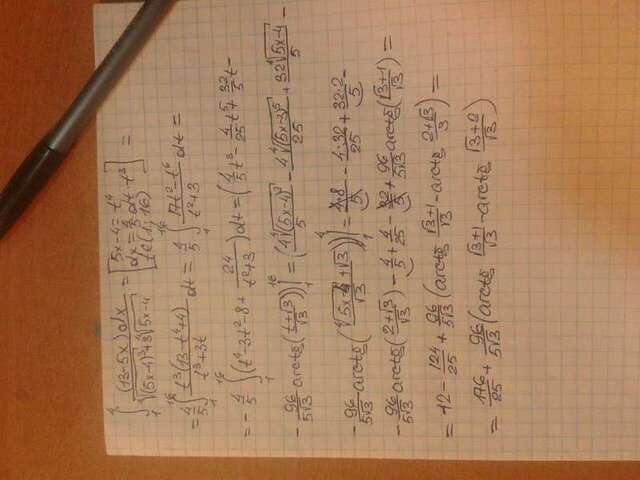 ∫₁⁴ (13-5x)dx / (√(5x-4)³+3⁴√5x-4) = [5x-4=t⁴ dx=4/5 dt·t³ t∈(1;16)] =
= 4/5 ∫₁¹⁶ t³(13-t⁴) / (t³+3t) dt = 4/5 ∫₁¹⁶ (17t²-t⁶) / (t²+3) dt =
= -4/5 ∫₁¹⁶ (t⁴-3t²-8+ 24/(t²+3))dt = (4/5 t³ - 4/25 t⁵ + 32/5 t -
- 96/5√3 arctg((t+√3)/√3))|₁¹⁶ = (4⁴√(5x-4)³/5 - 4⁴√(5x-3)⁵/25 + 32⁴√5x-4/5 -
- 96/5√3 arctg((⁴√5x-4+√3)/√3))|₁⁴ = 4·8/5 - 4·32/25 + 32·2/5 -
- 96/5√3 arctg((2+√3)/√3) - 4/5 + 4/25 - 32/5 + 96/5√3 arctg((√3+1)/√3) =
= 12 - 124/25 + 96/5√3 (arctg (√3+1)/√3 - arctg (2+√3)/3) =
= 176/25 + 96/5√3 (arctg (√3+1)/√3 - arctg (√3+2)/√3)